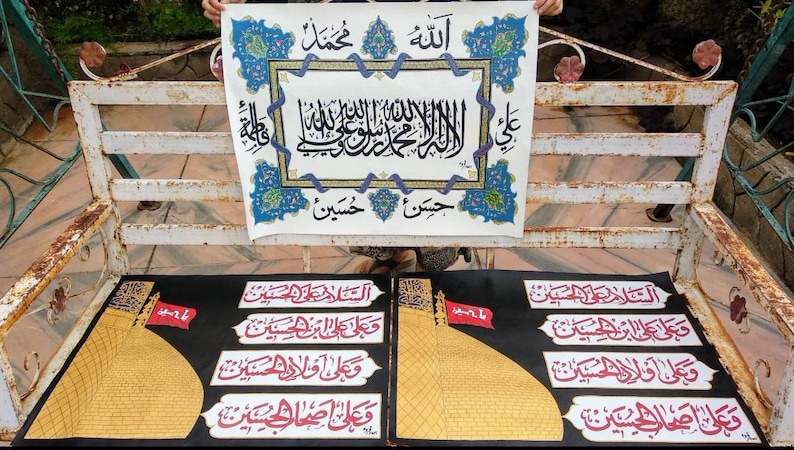 الله محمد
علي
لا اله الا الله محمد رسول الله علي ولي الله
فاطمة
حسن حسين
السلام على الحسين
وعلى علي ابن الحسين
وعلى اولاد الحسين
وعلى اصحاب الحسين
يا حسين
السلام على الحسين
وعلى علي ابن الحسين
وعلى اولاد الحسين
وعلى اصحاب الحسين
يا حسين